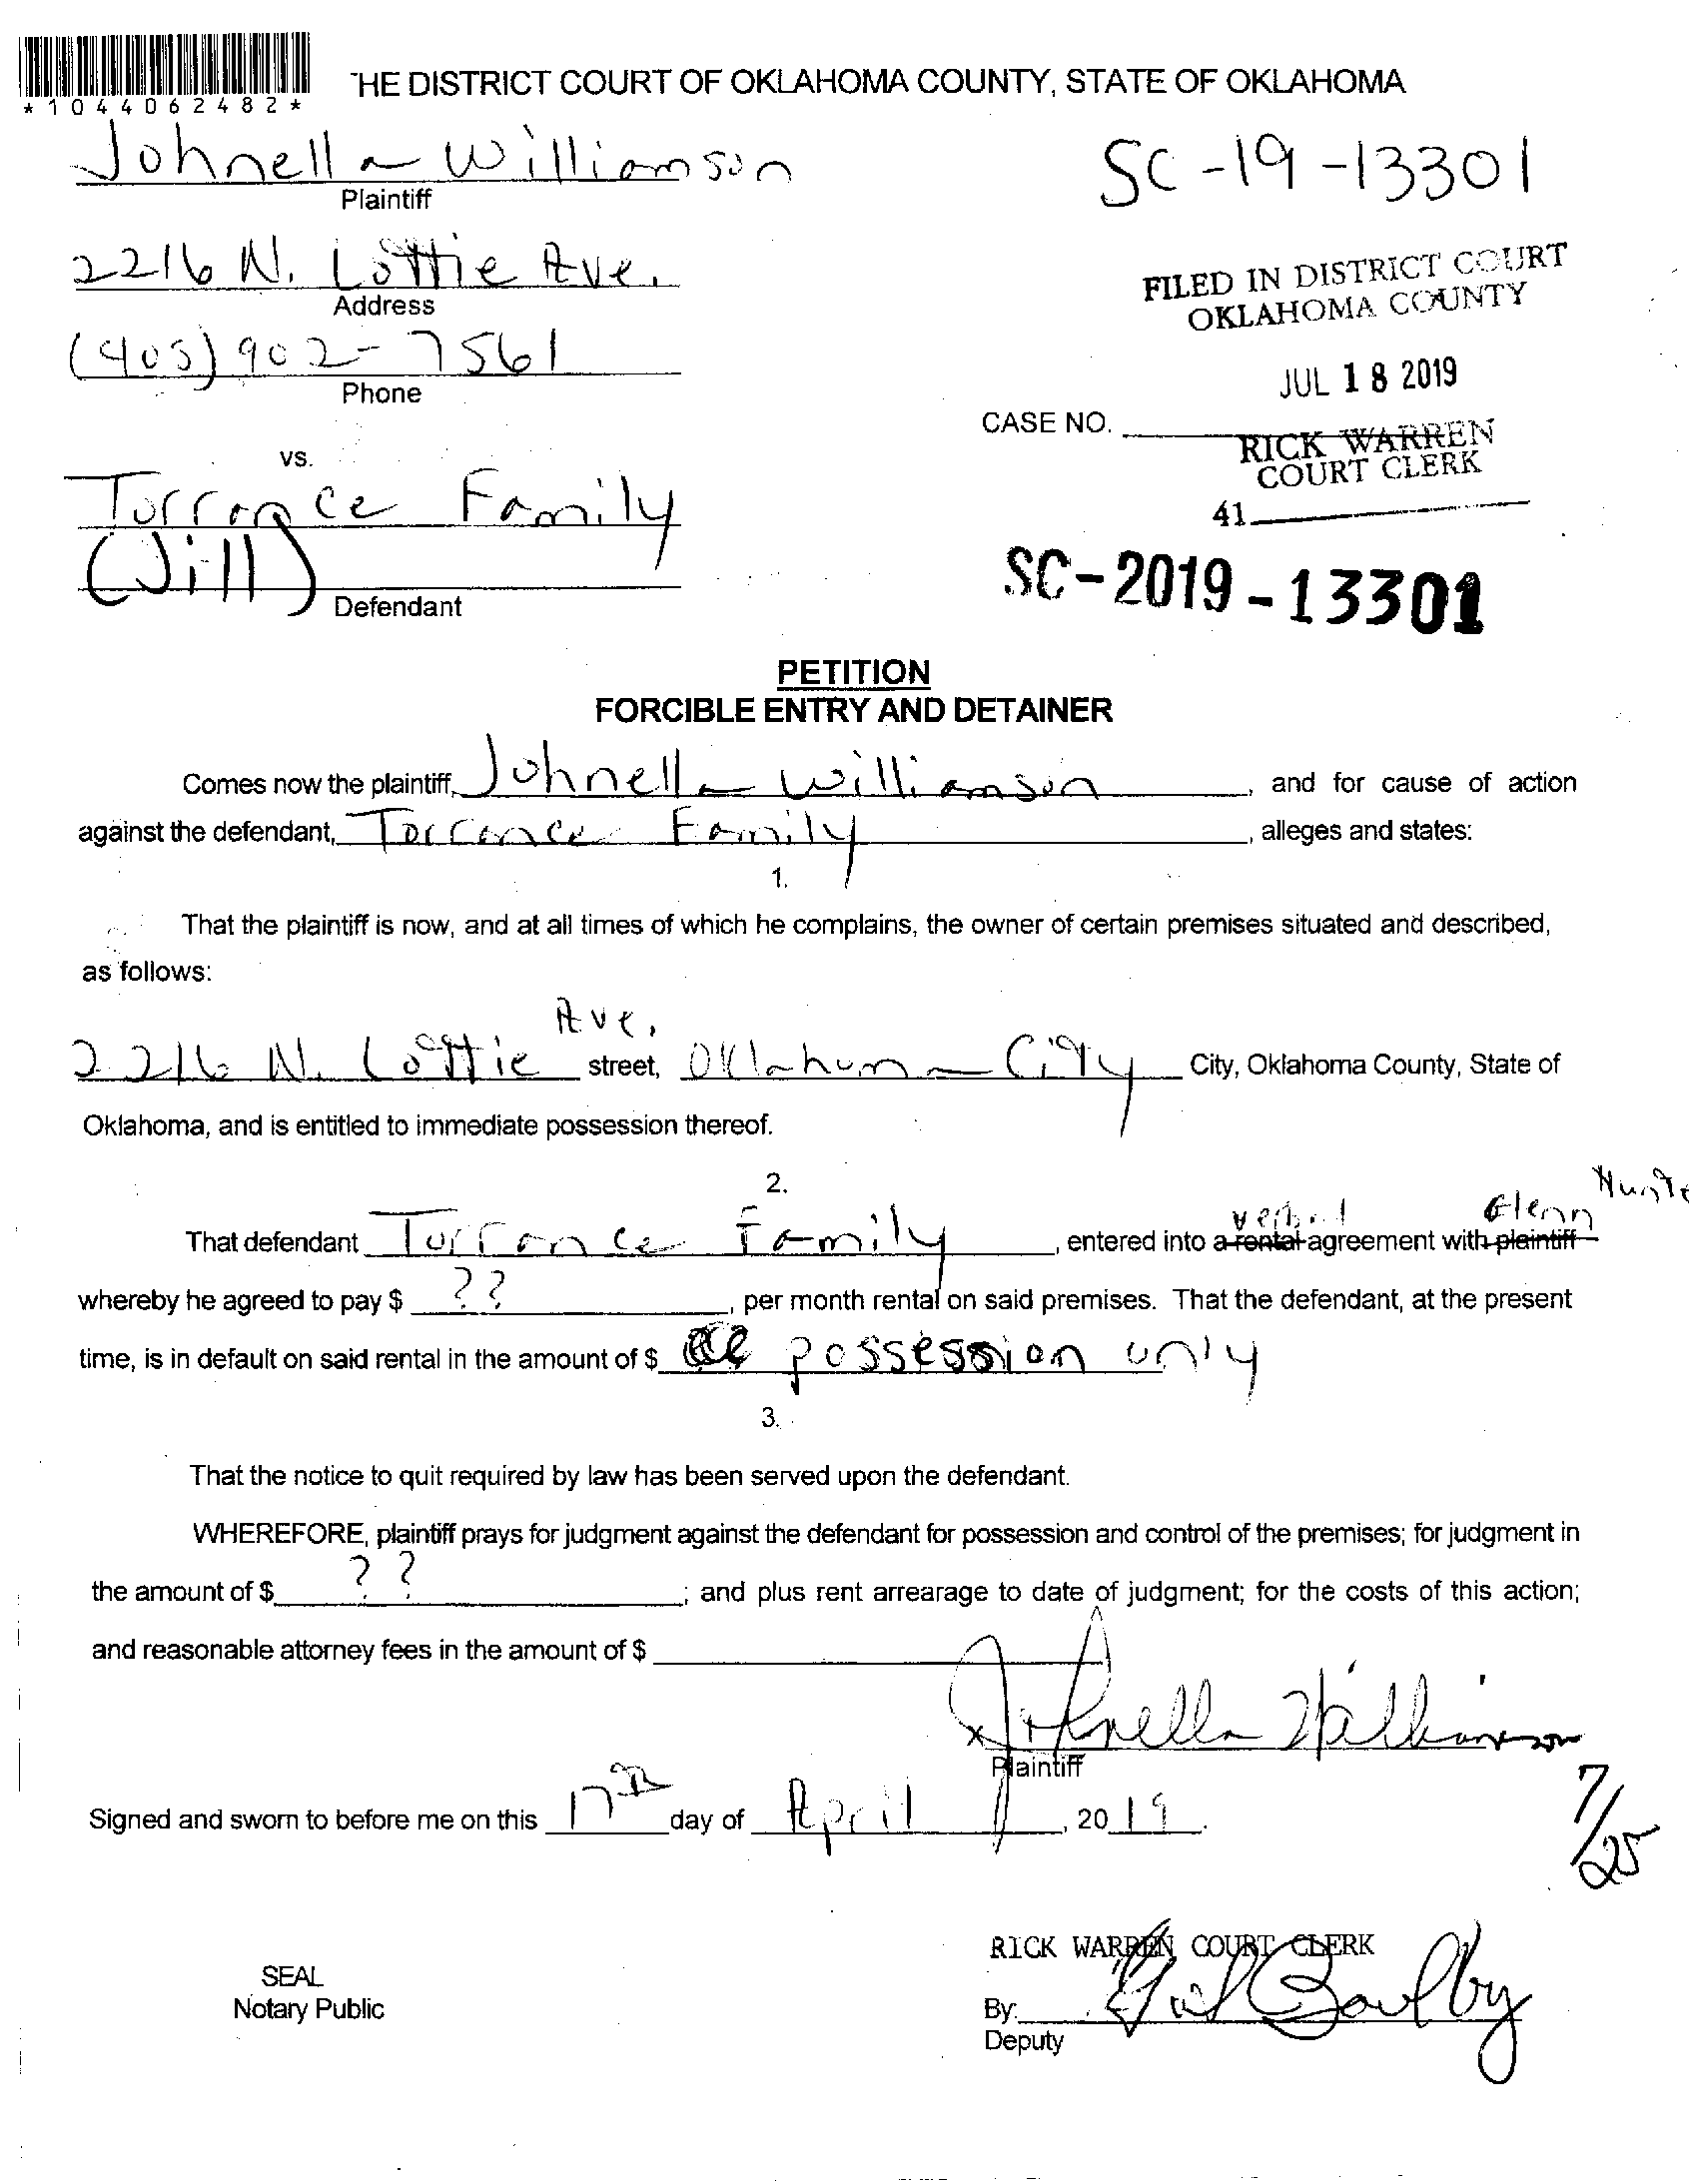 *1044062482*
HE DISTRICT COURT OF OKLAHOMA COUNTY, STATE OF OKLAHOMA
Johnella Williamson
Plaintiff
SC-19-13301
2216 N. Lottie Ave.
Address
FILED IN DISTRICT COURT
OKLAHOMA COUNTY
(405) 902-7561
Phone
JUL 18 2019
CASE NO.
RICK WARREN
COURT CLERK
41
vs.
Torrance Family
(Jill)
Defendant
SC-2019-13301
PETITION
FORCIBLE ENTRY AND DETAINER
Comes now the plaintiff, Johnella Williamson, and for cause of action
against the defendant, Torrance Family, alleges and states:
1.
That the plaintiff is now, and at all times of which he complains, the owner of certain premises situated and described,
as follows:
Ave.
2216 N. Lottie street, Oklahoma City City, Oklahoma County, State of
Oklahoma, and is entitled to immediate possession thereof.
2.
verbal Glenn
That defendant Torrance Family, entered into a rental agreement with plaintiff
whereby he agreed to pay $ ??, per month rental on said premises. That the defendant, at the present
time, is in default on said rental in the amount of $ possession only
3.
That the notice to quit required by law has been served upon the defendant.
WHEREFORE, plaintiff prays for judgment against the defendant for possession and control of the premises; for judgment in
the amount of $ ??; and plus rent arrearage to date of judgment; for the costs of this action;
and reasonable attorney fees in the amount of $
x Johnella Williamson
Plaintiff
Signed and sworn to before me on this 17th day of April, 2019.
7/25
RICK WARREN COURT CLERK
SEAL
Notary Public
By:
Deputy